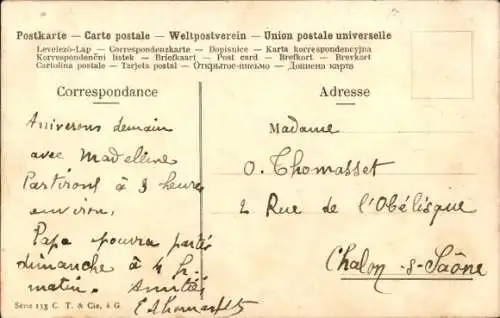 Postkarte — Carte postale — Weltpostverein — Union postale universelle
Levelező-Lap — Correspondenzkarte — Dopisnice — Karta korrespondencyjna
Korrespondenční listek — Briefkaart — Post card — Brefkort — Brevkort
Cartolina postale — Tarjeta postal — Открытое письмо — Дописна карта
Correspondance
Adresse
Arriverons demain
avec Madeleine
Partirons à 3 heures
environ.
Papa pourra partir
dimanche à 4 h.
matin. Amitiés
Madame
O. Thomasset
2 Rue de l'Obélisque
Chalon-s-Saône
Série 133 C. T. & Cie, à G.